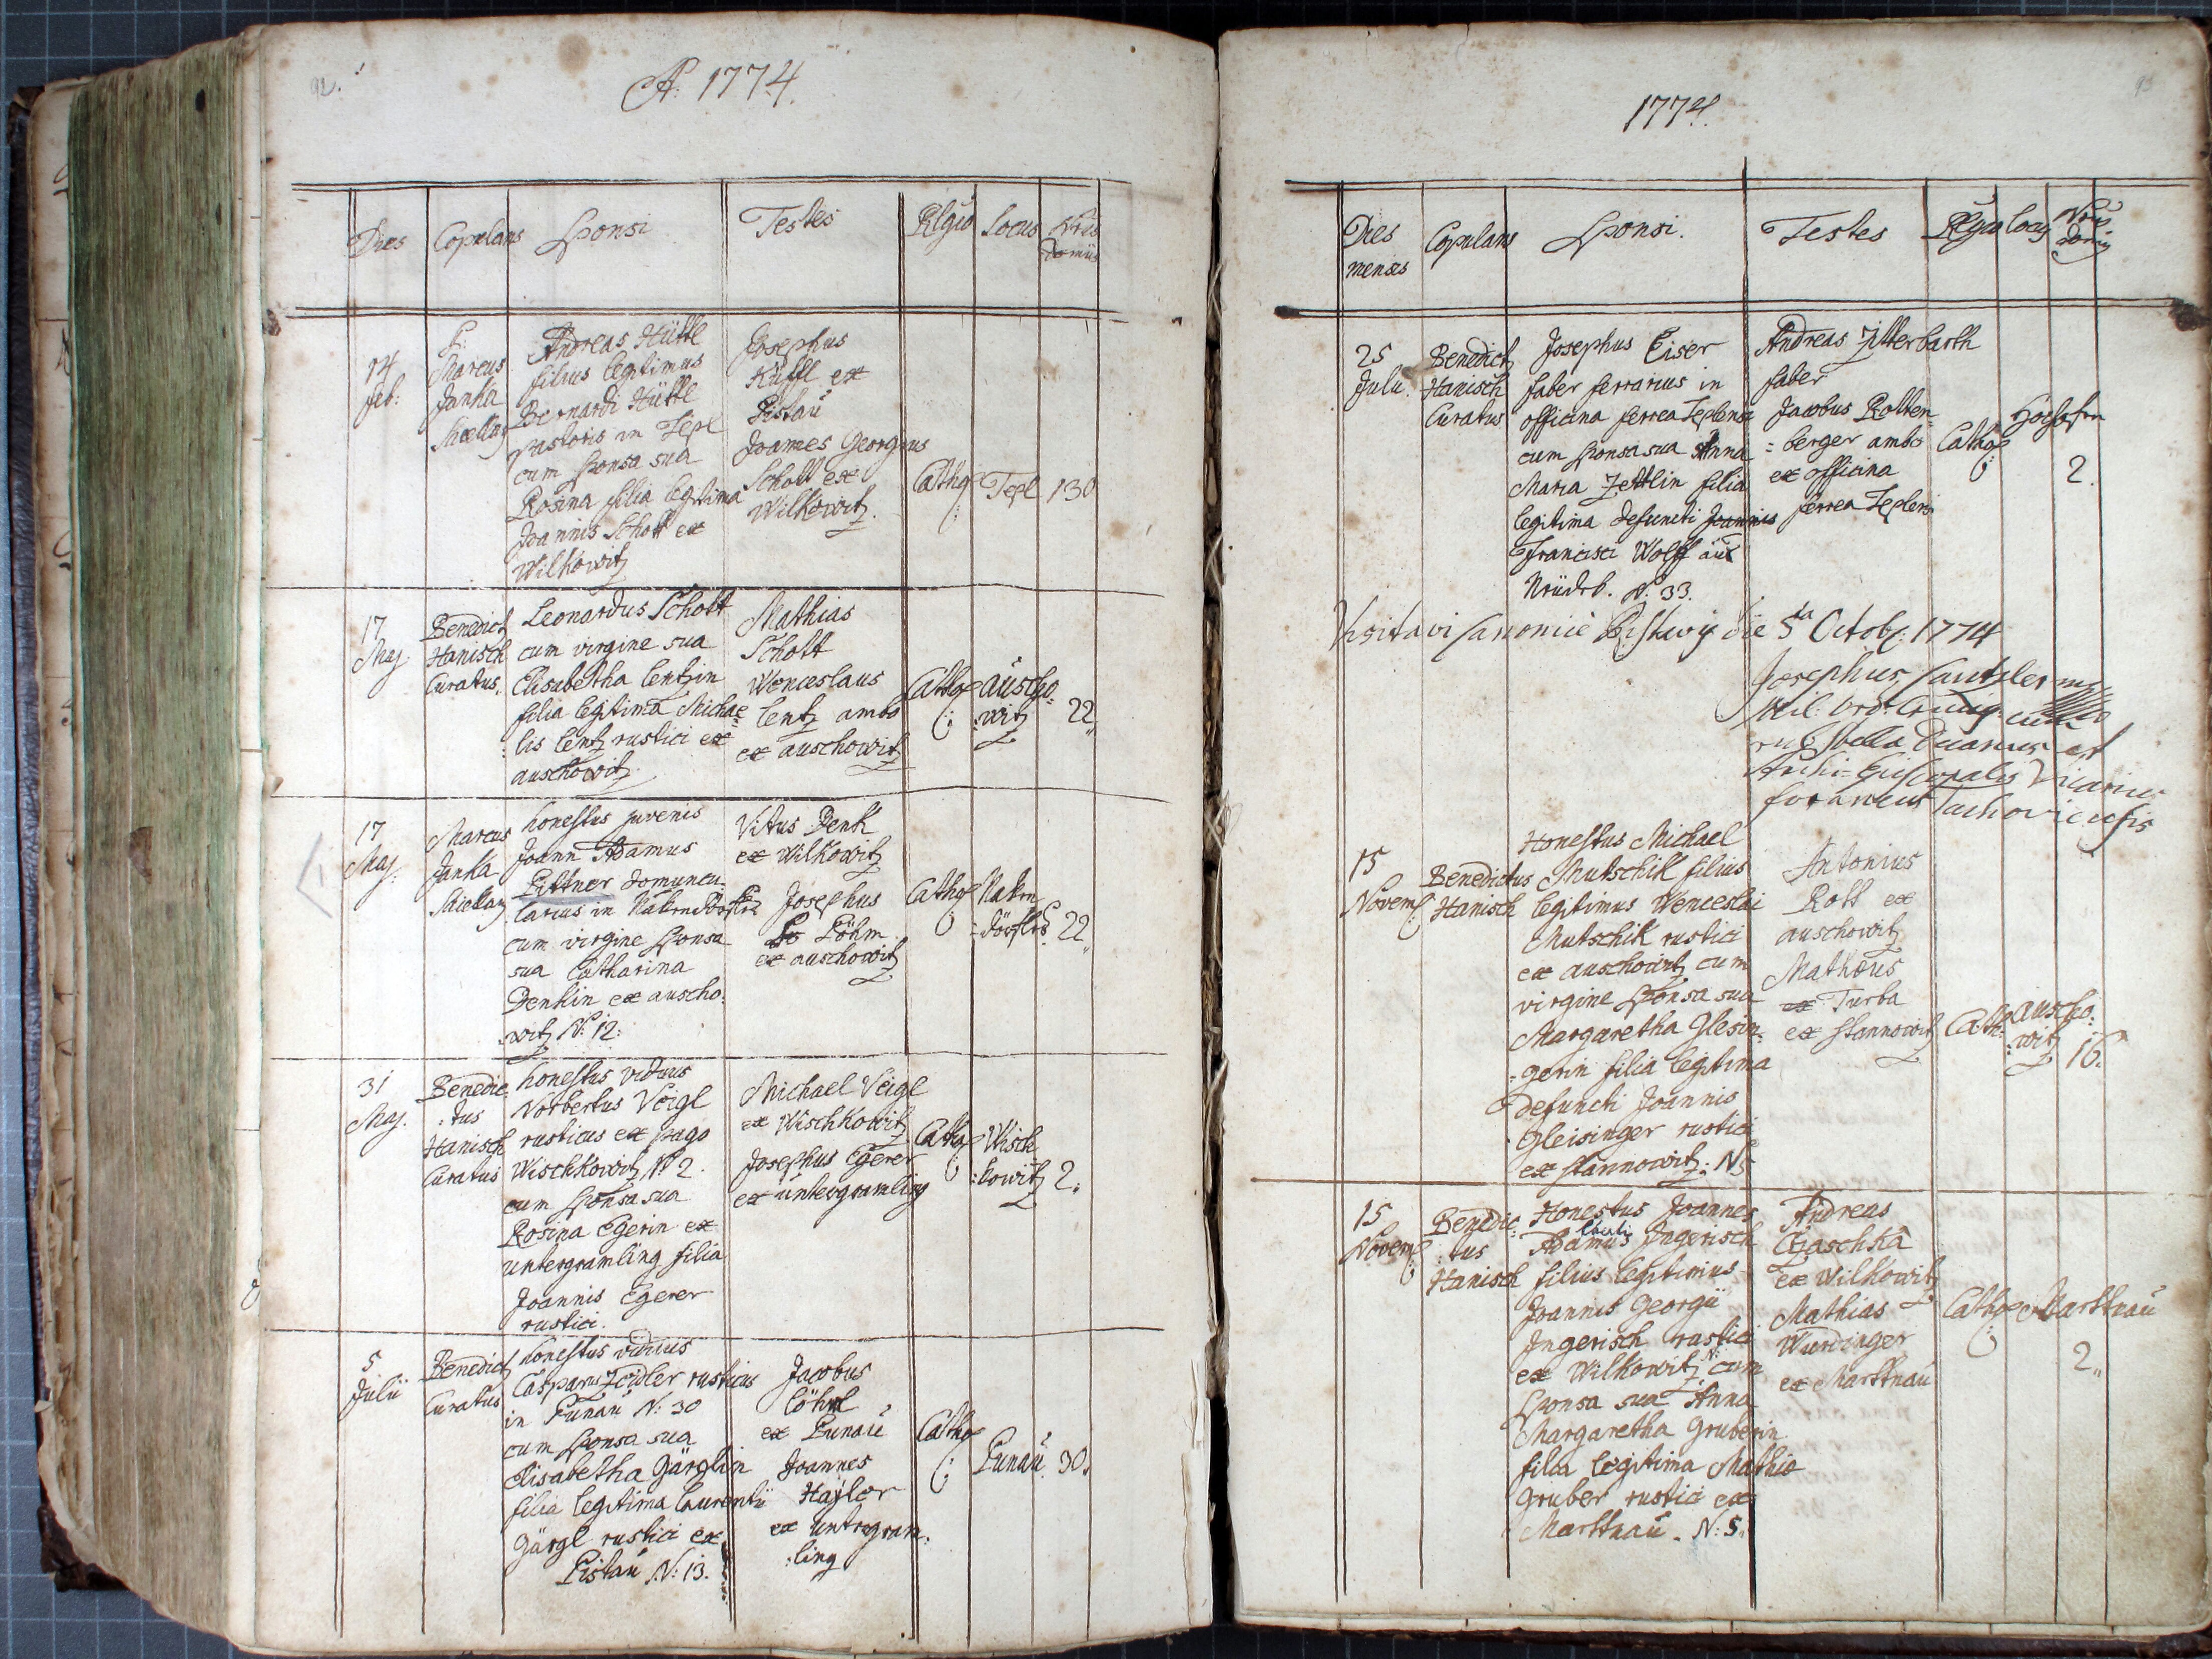 92.
A: 1774.
Dies Copulans Sponsi Testes Religio Locus Nris Domûs
14
Feb:
P:
Marcus
Janka
Andreas Hüttl
filius legitimus
Bernardi Hüttl
pastoris in Tepl
cum sponsa sua
Rosina filia legitima
Joannis Schott ex
Wilkowitz
Josephus
Küffl ex
Pistaŭ
Joannes Georgius
Schott ex
Wilkowitz.
Cathol:
Tepl
130
17
Maj.
Benedict
Hanisch
Curatus.
Leonardus Schott
cum virgine sua
Elisabetha Lentzin
filia legitima Michae
:lis Lentz rustici ex
auschowitz
Mathias
Schott
Wenceslaus
Lentz ambo
ex auschowitz
Cathol:
auscho-
:witz
22
17
Maj.
Marcus
Janka
honestus juvenis
Joann Adamus
Pittner domuncu-
larius in
cum virgine sponsa
sua Catharina
Denkin ex auscho:
witz N: 12:
Vitus Denk
ex Wilkowitz
Josephus
Böhm
ex auschowitz
Cathol:
22
31
Maj.
Benedic-
:tus
Hanisch
Curatus
honestus viduus
Norbertus Veigl
rusticus ex pago
Wischkowitz N: 2.
cum sponsa sua
Rosina Egerin ex
untergramling filia
Joannis Egerer
rustici.
Michael Veigl
ex Wischkowitz
Josephus Egerer
ex untergramling
Cathol:
Wisch
:kowitz
2.
5
Julii
Benedict
Curatus
honestus viduus
Casparus Zeidler rusticus
in Punaŭ N: 30
cum sponsa sua
Elisabetha Gärglin
filia legitima Laurentii
Gärgl rustici ex
Pistaŭ N: 13.
Jacobus
Löhrl
ex Punaŭ
Joannes
Haÿler
ex untergram:
:ling
Cathol:
Punaŭ.
30.
93
1774.
Dies menses Copulans Sponsi. Testes Religio Locus Nris Domûs
25
Julii.
Benedict
Hanisch
Curatus
Josephus Eiser
faber ferrarius in
officina ferrea Teplensi
cum sponsa sua Anna
Maria Zettlin filia
legitima defuncti Joannis
Francisci Wolff aus
N: 33.
Andreas Zitterbarth
faber
Jacobus Rotten-
:berger ambo
ex officina
ferrea Teplensi
Cathol:
Hochofen
2.
Visitavi Canonicè die 5ta Octob: 1774
Josephus
Decanus et
Archi-Episcopalis Vicarius
foraneus Tachoviensis
15
Novemb:
Benedictus
Hanisch
Honestus Michael
Mutschik filius
legitimus Wenceslai
Mutschik rustici
ex auschowitz cum
virgine sponsa sua
Margaretha Glesin-
:gerin filia legitima
defuncti Joannis
Gleisinger rustici
ex stannowitz: N 5
Antonius
Rott ex
auschowitz
Mathæus
ex Turba
ex stannowitz
Cath:
auscho:
:witz
16.
15
Novemb:
Benedic-
:tus
Hanisch
Honestus Joannes
Adamus Ingerisch
filius legitimus
Joannis Georgii
Ingerisch rustici
ex Wilkowitz N: cum
sponsa sua Anna
Margaretha Gruberin
filia legitima Mathiæ
Gruber rustici ex
Marttnaŭ. N: 5.
Andreas
Czaschka
ex Wilkowitz
Mathias
Wurdinger
ex Marttnaŭ
Cathol:
Marttnaŭ
2.